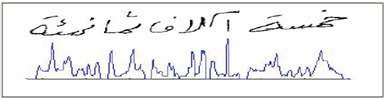 خمسة آلاف ثمانمئة